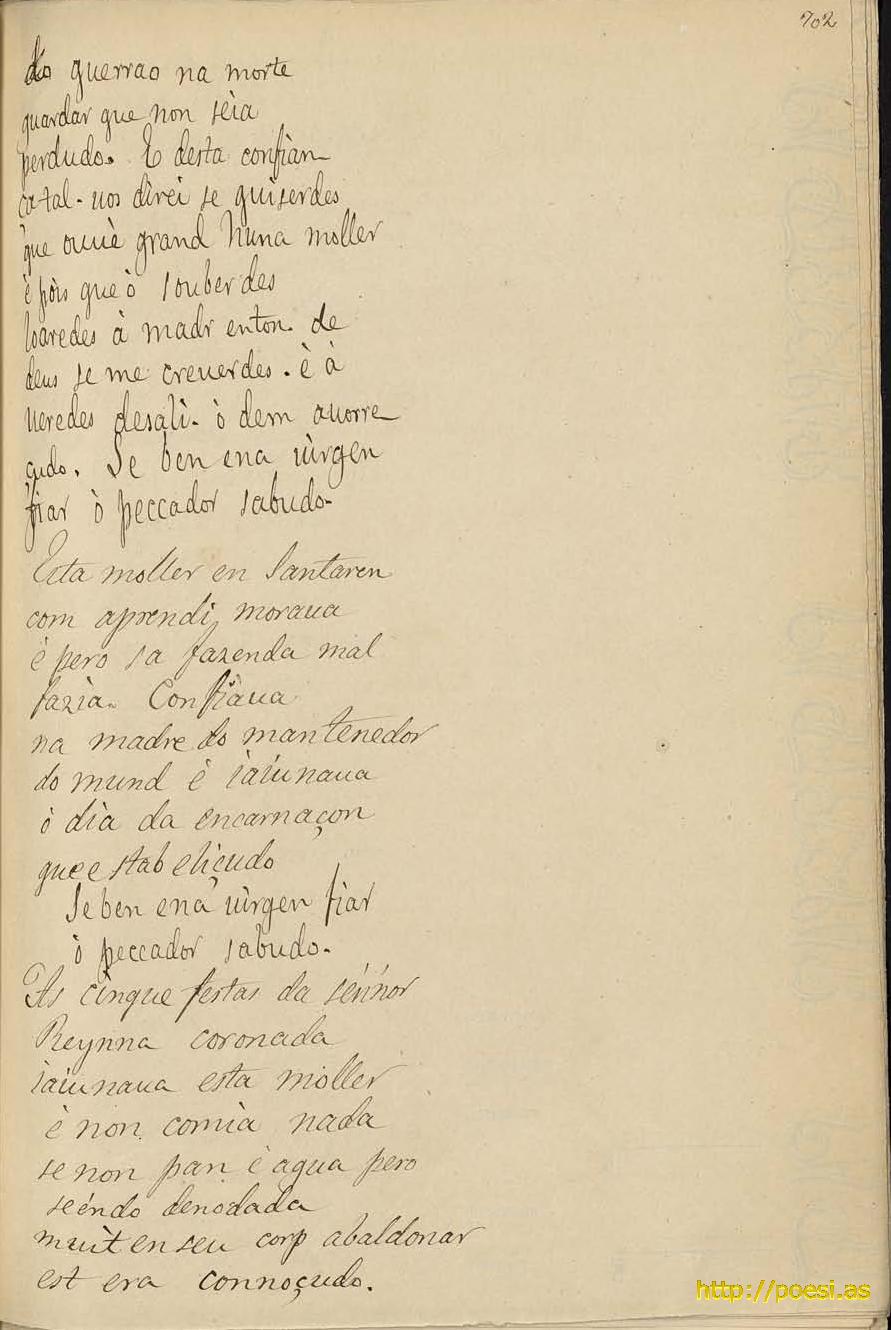 702
do guerrao na morte
guardar que non sèia
perdudo. E desta confian-
ca tal. uos direi se quiserdes
que ouuè grand huna moller
è pòis que ò souberdes
loaredes à madr enton. de
deus se me creuerdes. è à
ueredes desali. ò dem auorre-
çudo. Se ben ena uìrgen
fiar ò peccador sabudo.
Esta moller en Santaren
com aprendi, moraua
è pero sa fazenda mal
fazìa. Confiàua
na madre do mantenedor
do mund è iaiunaua
ò dìa da encarnaçon
que estabeliçudo
Se ben ena uìrgen fiar
ò peccador sabudo.
As cinque festas da sennor
Reynna coronada
iaiunaua esta moller
è non comìa nada
se non pan è agua pero
seéndo denodada
muit en seu corp abaldonar
est era connoçudo.
http://poesi.as